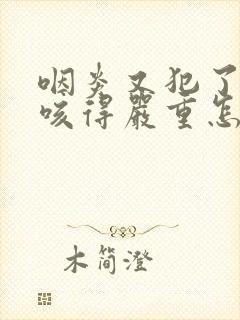 咽炎又犯了
咳得严重怎
木简澄